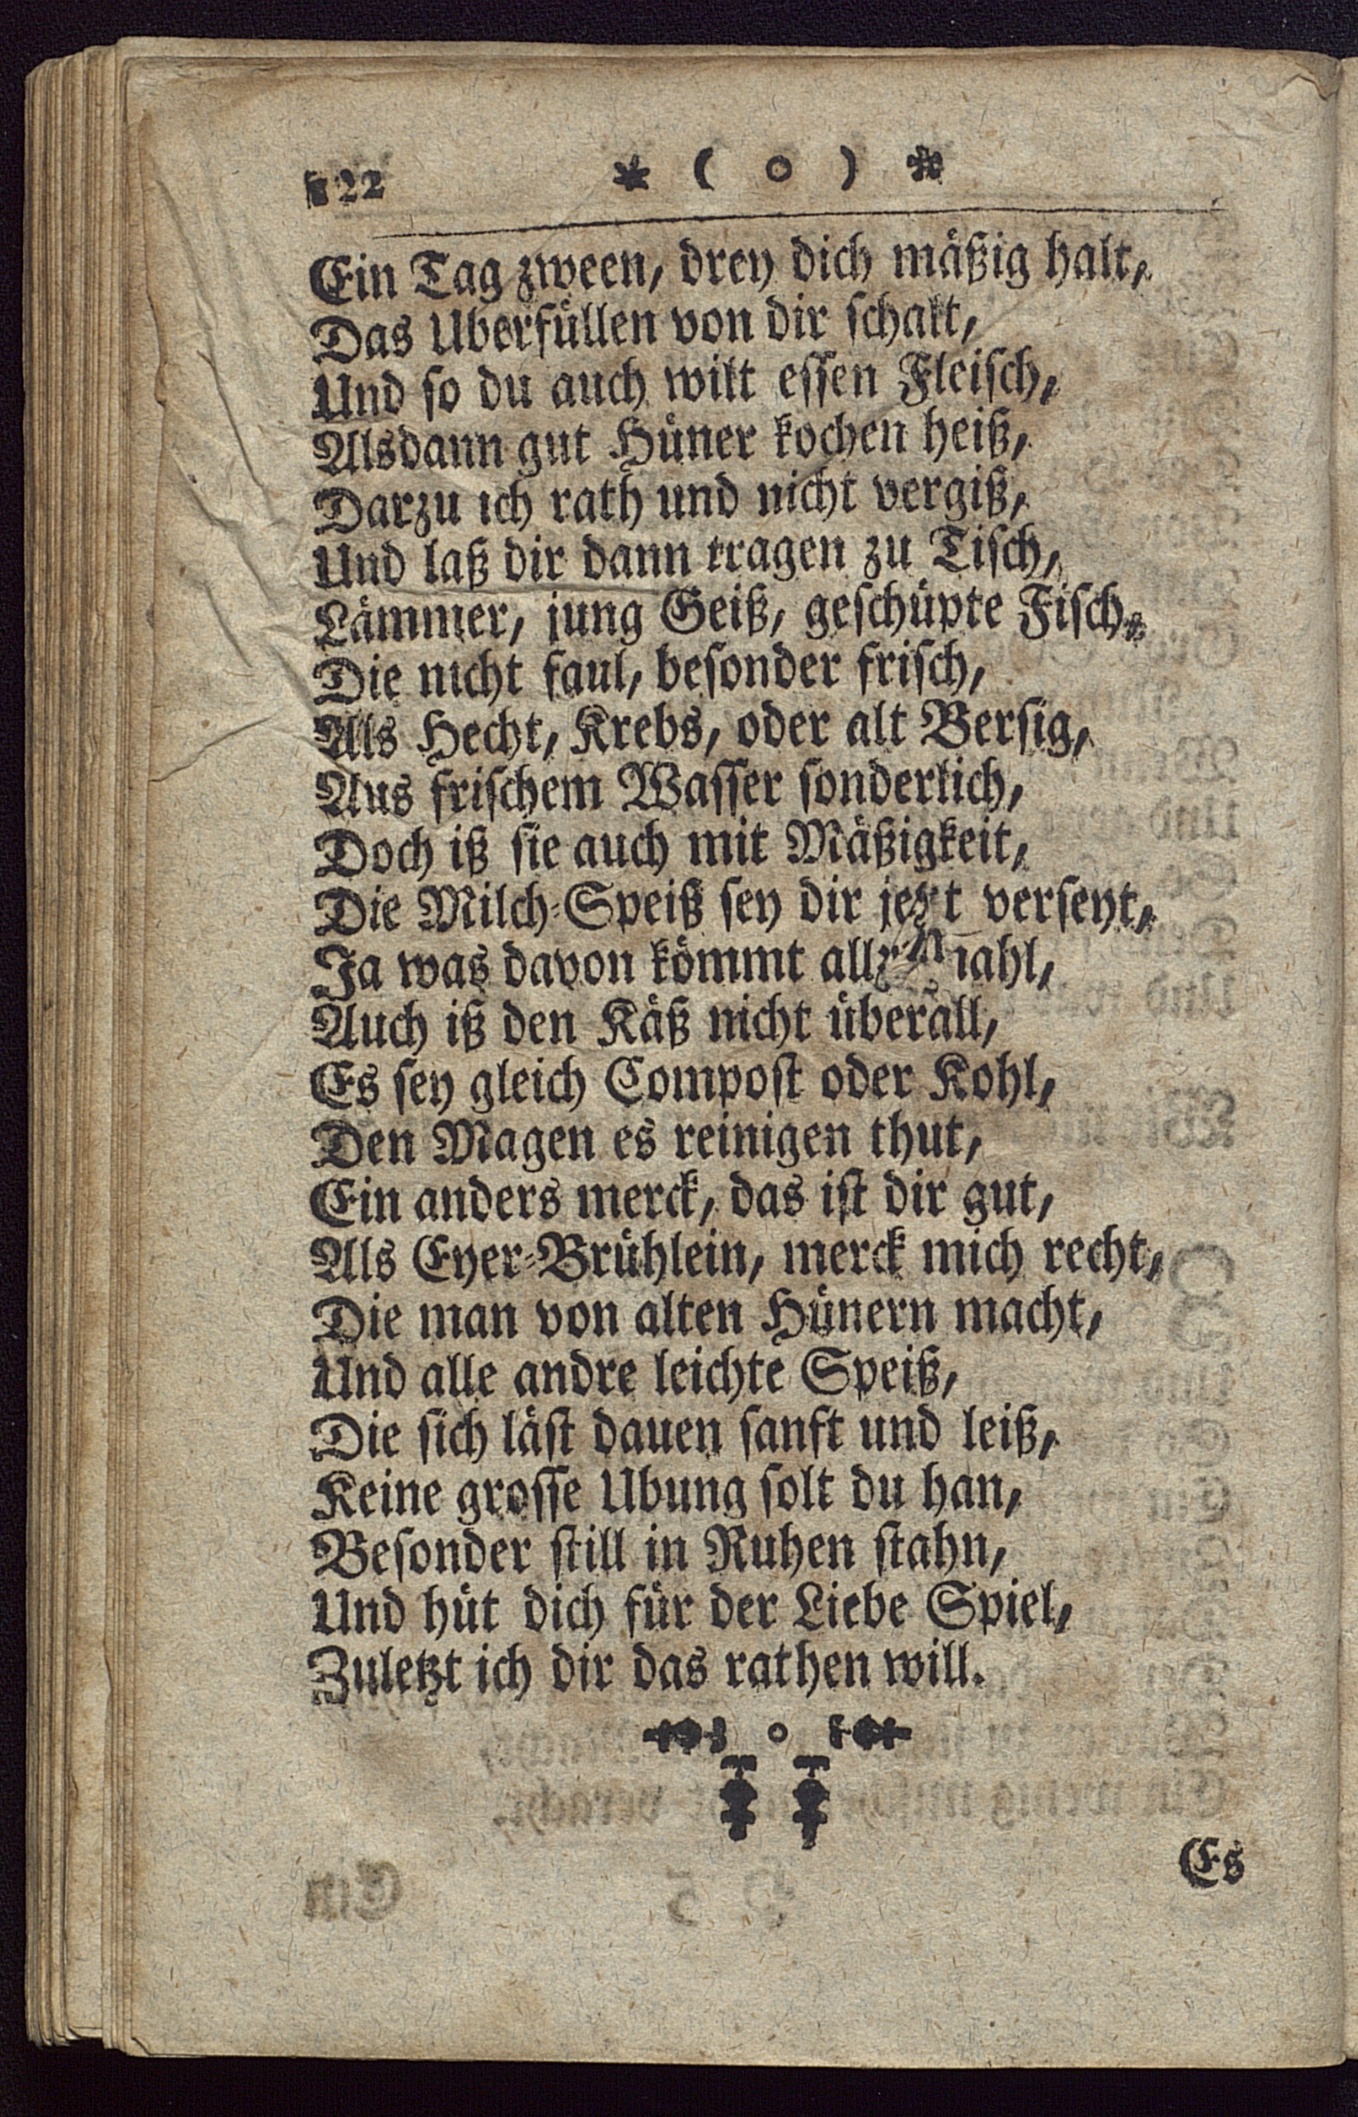 122 * ( o ) *
Ein Tag zween, drey dich mäßig halt,
Das Uberfüllen von dir schalt,
Und so du auch wilt essen Fleisch,
Alsdann gut Hüner kochen heiß,
Darzu ich rath und nicht vergiß,
Und laß dir dann tragen zu Tisch,
Lämmer, jung Geiß, geschüpte Fisch,
Die nicht faul, besonder frisch,
Als Hecht, Krebs, oder alt Bersig,
Aus frischem Wasser sonderlich,
Doch iß sie auch mit Mäßigkeit,
Die Milch-Speiß sey dir jetzt verseyt,
Ja was davon kömmt
Auch iß den Käß nicht überall,
Es sey gleich Compost oder Kohl,
Den Magen es reinigen thut,
Ein anders merck, das ist dir gut,
Als Eyer-Brühlein, merck mich recht,
Die man von alten Hünern macht,
Und alle andre leichte Speiß,
Die sich läst dauen sanft und leiß,
Keine grosse Ubung solt du han,
Besonder still in Ruhen stahn,
Und hüt dich für der Liebe Spiel,
Zuletzt ich dir das rathen will.
Es